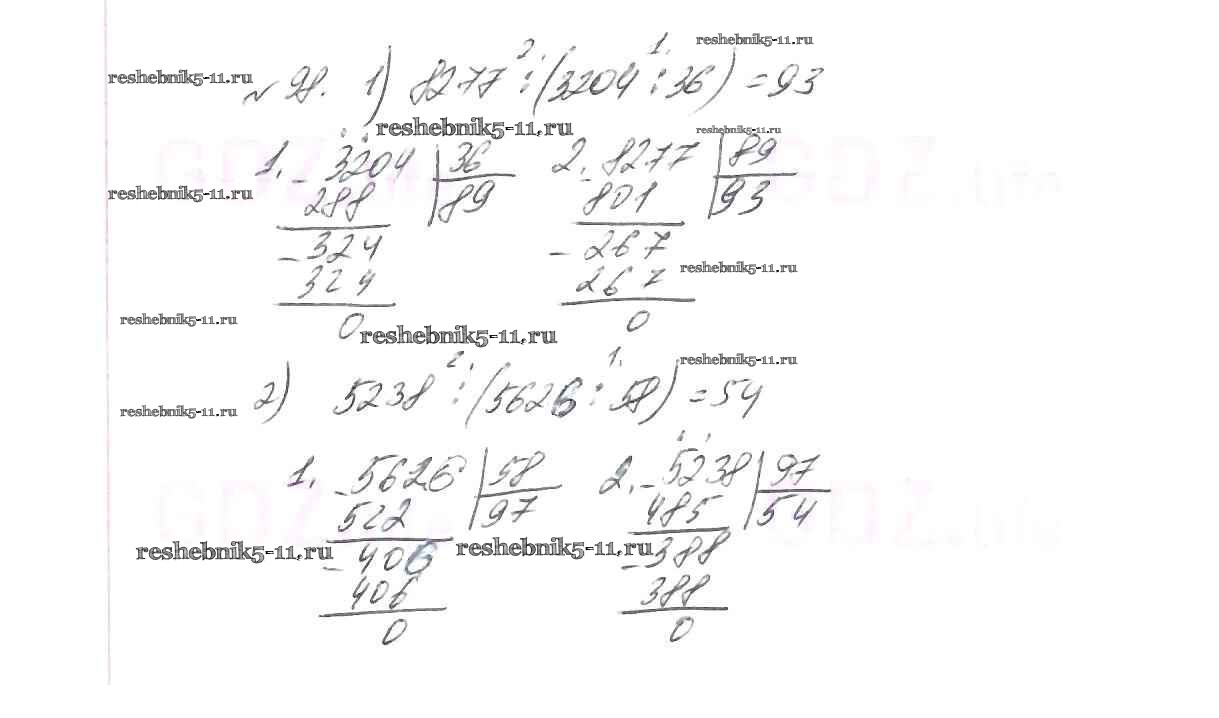 reshebnik5-11.ru
reshebnik5-11.ru
№ 98. 1) 8277 : (3204 : 36) = 93
2. 1.
reshebnik5-11.ru
reshebnik5-11.ru
1. - 3204 | 36
2. - 8277 | 89
reshebnik5-11.ru
288 | 89
801 | 93
- 324
- 267
reshebnik5-11.ru
324
267
reshebnik5-11.ru
0
0
reshebnik5-11.ru
2. 1.
reshebnik5-11.ru
2) 5238 : (5626 : 58) = 54
reshebnik5-11.ru
1. - 5626 | 58
2. - 5238 | 97
522 | 97
485 | 54
reshebnik5-11.ru
reshebnik5-11.ru
- 406
- 388
406
388
0
0